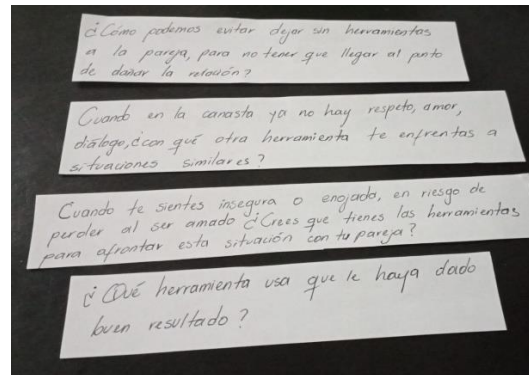 ¿Cómo podemos evitar dejar sin herramientas
a la pareja, para no tener que llegar al punto
de dañar la relación?
Cuando en la canasta ya no hay respeto, amor,
diálogo, ¿con qué otra herramienta te enfrentas a
situaciones similares?
Cuando te sientes insegura o enojada, en riesgo de
perder al ser amado ¿Crees que tienes las herramientas
para afrontar esta situación con tu pareja?
¿Qué herramienta usa que le haya dado
buen resultado?